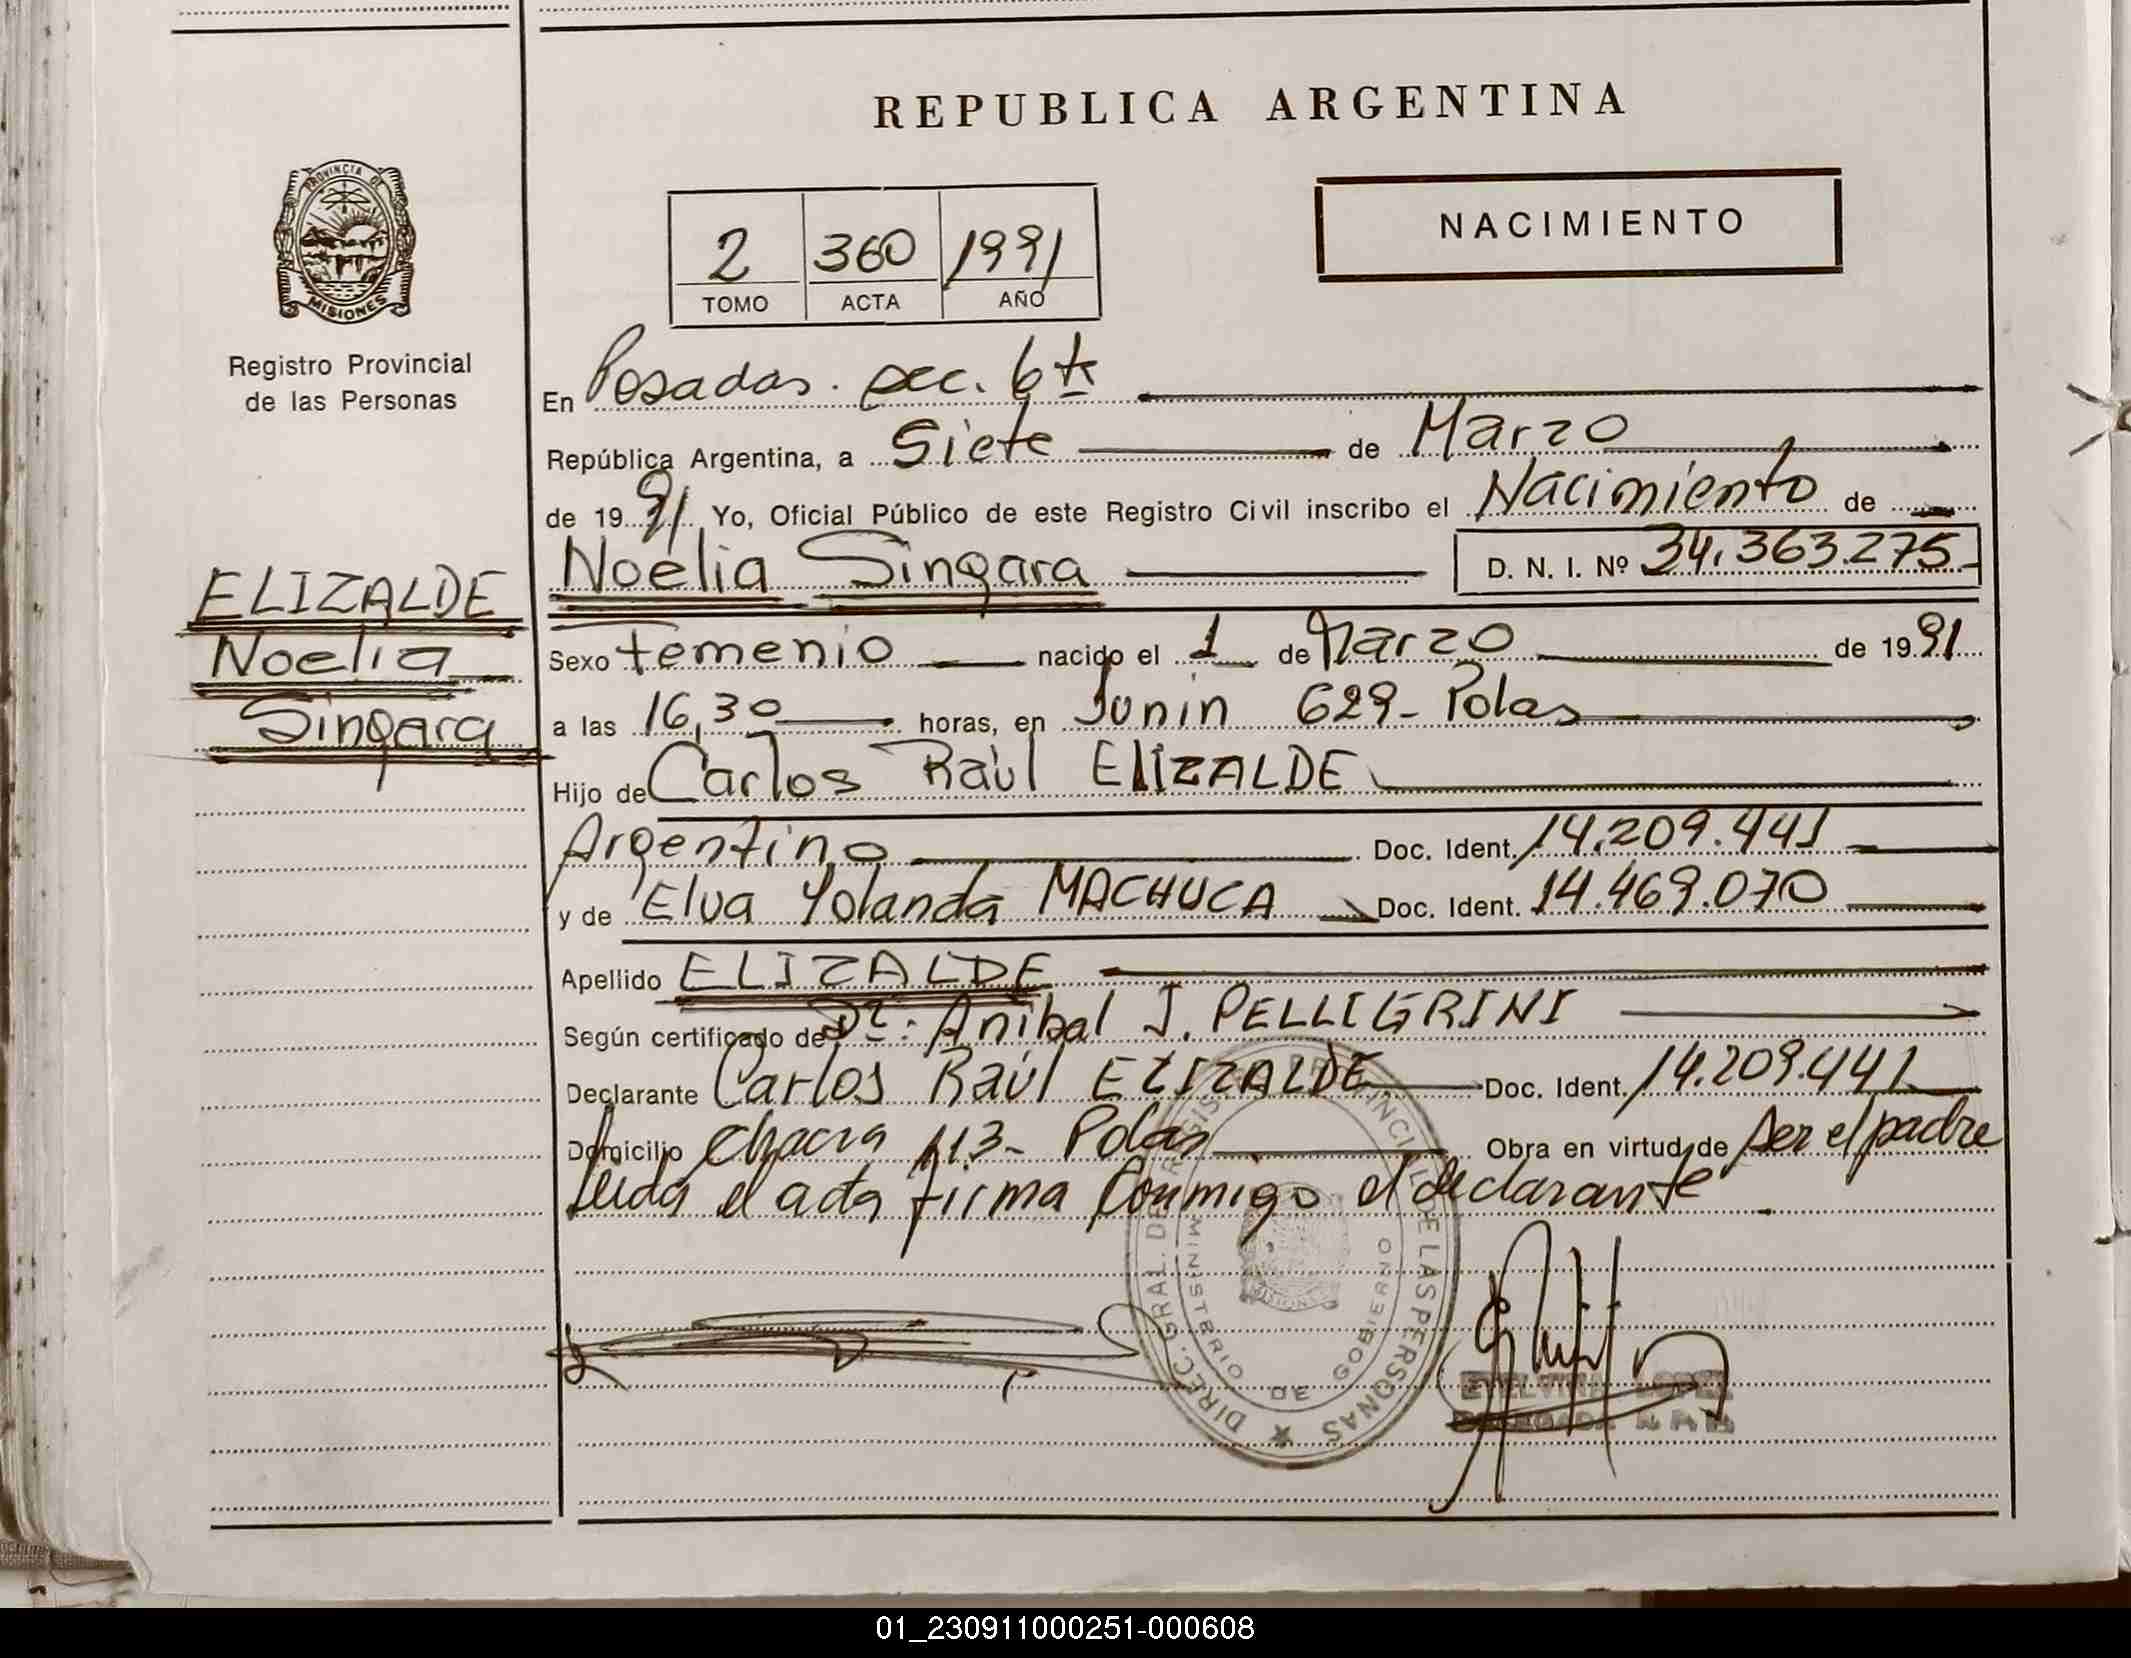 REPUBLICA ARGENTINA
PROVINCIA DE
MISIONES
Registro Provincial
de las Personas
NACIMIENTO
2 360 1991
TOMO ACTA AÑO
En Posadas. sec. 6ta
República Argentina, a Siete de Marzo
de 1991 Yo, Oficial Público de este Registro Civil inscribo el Nacimiento de
Noelia Singara D. N. I. Nº 34.363.275
ELIZALDE
Noelia
Singara
Sexo femenio nacido el 1 de Marzo de 1991
a las 16,30 horas, en Junin 629- Pdas
Hijo de Carlos Raúl ELIZALDE
Argentino Doc. Ident. 14.209.441
y de Elva Yolanda MACHUCA Doc. Ident. 14.469.070
Apellido ELIZALDE
Según certificado de Dr: Anibal J. PELLIGRINI
Declarante Carlos Raúl ELIZALDE Doc. Ident. 14.209.441
Domicilio Chacra 113- Pdas Obra en virtud de ser el padre
Leida el acta firma conmigo el declarante
DIREC. GRAL. DE REGISTRO PROVINCIAL DE LAS PERSONAS
MINISTERIO DE GOBIERNO
MISIONES
ETELVINA LOPEZ
DELEGADA
01_230911000251-000608